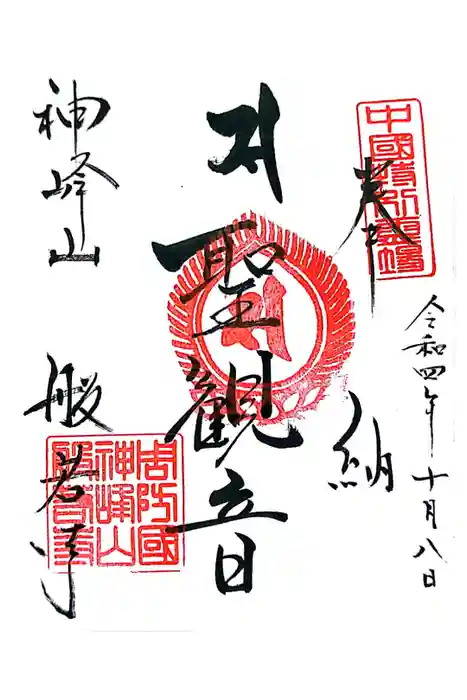 令和四年十月八日
奉納
中國特別霊場
聖観音
神峰山
般若寺
周防國
神峰山
般若寺